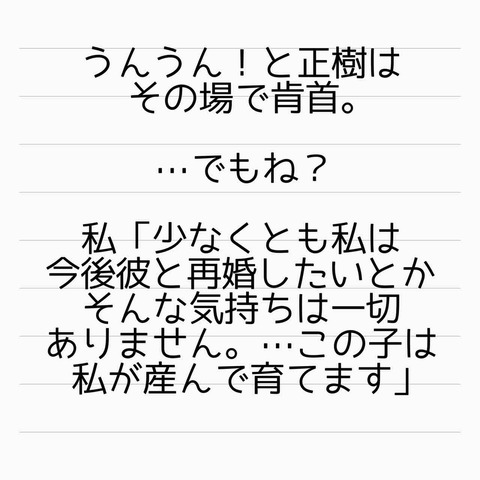 うんうん！と正樹は
その場で肯首。
…でもね？
私「少なくとも私は
今後彼と再婚したいとか
そんな気持ちは一切
ありません。…この子は
私が産んで育てます」